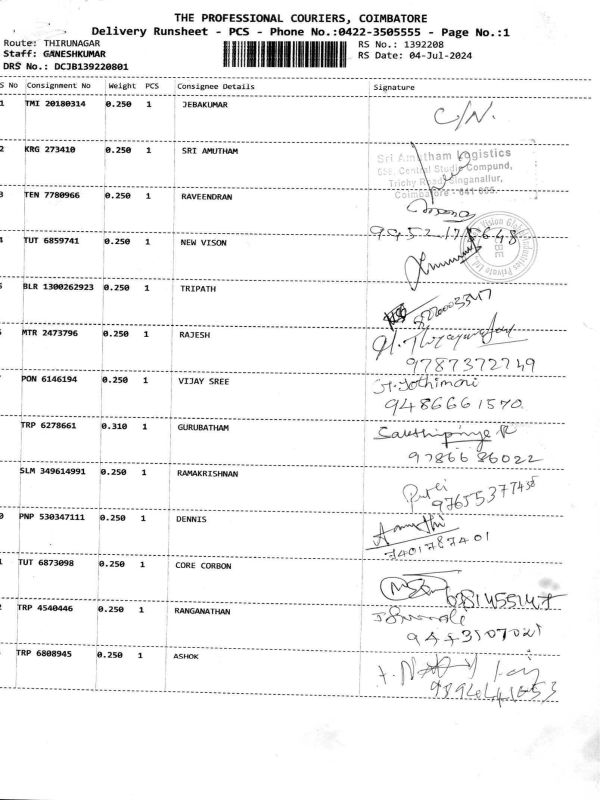 THE PROFESSIONAL COURIERS, COIMBATORE
Delivery Runsheet - PCS - Phone No.:0422-3505555 - Page No.:1
Route: THIRUNAGAR
RS No.: 1392208
Staff: GANESHKUMAR
RS Date: 04-Jul-2024
DRS No.: DCJB139220801
S No Consignment No Weight PCS Consignee Details Signature
1 TMI 20180314 0.250 1 JEBAKUMAR C/N.
2 KRG 273410 0.250 1 SRI AMUTHAM
Sri Amutham Logistics
Central Studio Compund,
Trichy Road, Singanallur,
Coimbatore - 641 005.
3 TEN 7780966 0.250 1 RAVEENDRAN
4 TUT 6859741 0.250 1 NEW VISON
BLR 1300262923 0.250 1 TRIPATH
MTR 2473796 0.250 1 RAJESH
9787372749
PON 6146194 0.250 1 VIJAY SREE
9486661570
TRP 6278661 0.310 1 GURUBATHAM
9786686022
SLM 349614991 0.250 1 RAMAKRISHNAN
PNP 530347111 0.250 1 DENNIS
7401787401
TUT 6873098 0.250 1 CORE CORBON
TRP 4540446 0.250 1 RANGANATHAN
TRP 6808945 0.250 1 ASHOK